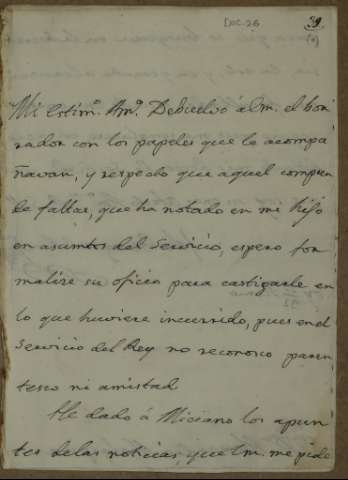 DOC. 26
39
Mi estim.º Am.º Debuelvo á Vm. el borr
rador con los papeles que le acompa
ñavan, y respecto que aquel compren
de faltas, que ha notado en mi hijo
en asuntos del Servicio, espero for
malize su oficio para castigarle en
lo que huviere incurrido, pues en el
Servicio del Rey no reconosco paren
tesco ni amistad
He dado á Miciano los apun
tes de las noticias, que Vm. me pide